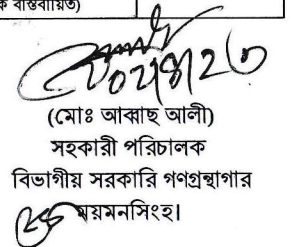 বাস্তবায়িত)
(মোঃ আব্বাছ আলী)
সহকারী পরিচালক
বিভাগীয় সরকারি গণগ্রন্থাগার
ময়মনসিংহ।